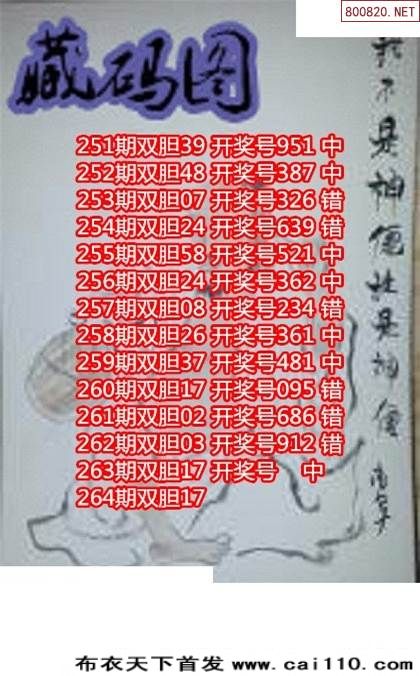 800820.NET
藏码图
251期双胆39 开奖号951 中
252期双胆48 开奖号387 中
253期双胆07 开奖号326 错
254期双胆24 开奖号639 错
255期双胆58 开奖号521 中
256期双胆24 开奖号362 中
257期双胆08 开奖号234 错
258期双胆26 开奖号361 中
259期双胆37 开奖号481 中
260期双胆17 开奖号095 错
261期双胆02 开奖号686 错
262期双胆03 开奖号912 错
263期双胆17 开奖号 中
264期双胆17
布衣天下首发 www.cai110.com